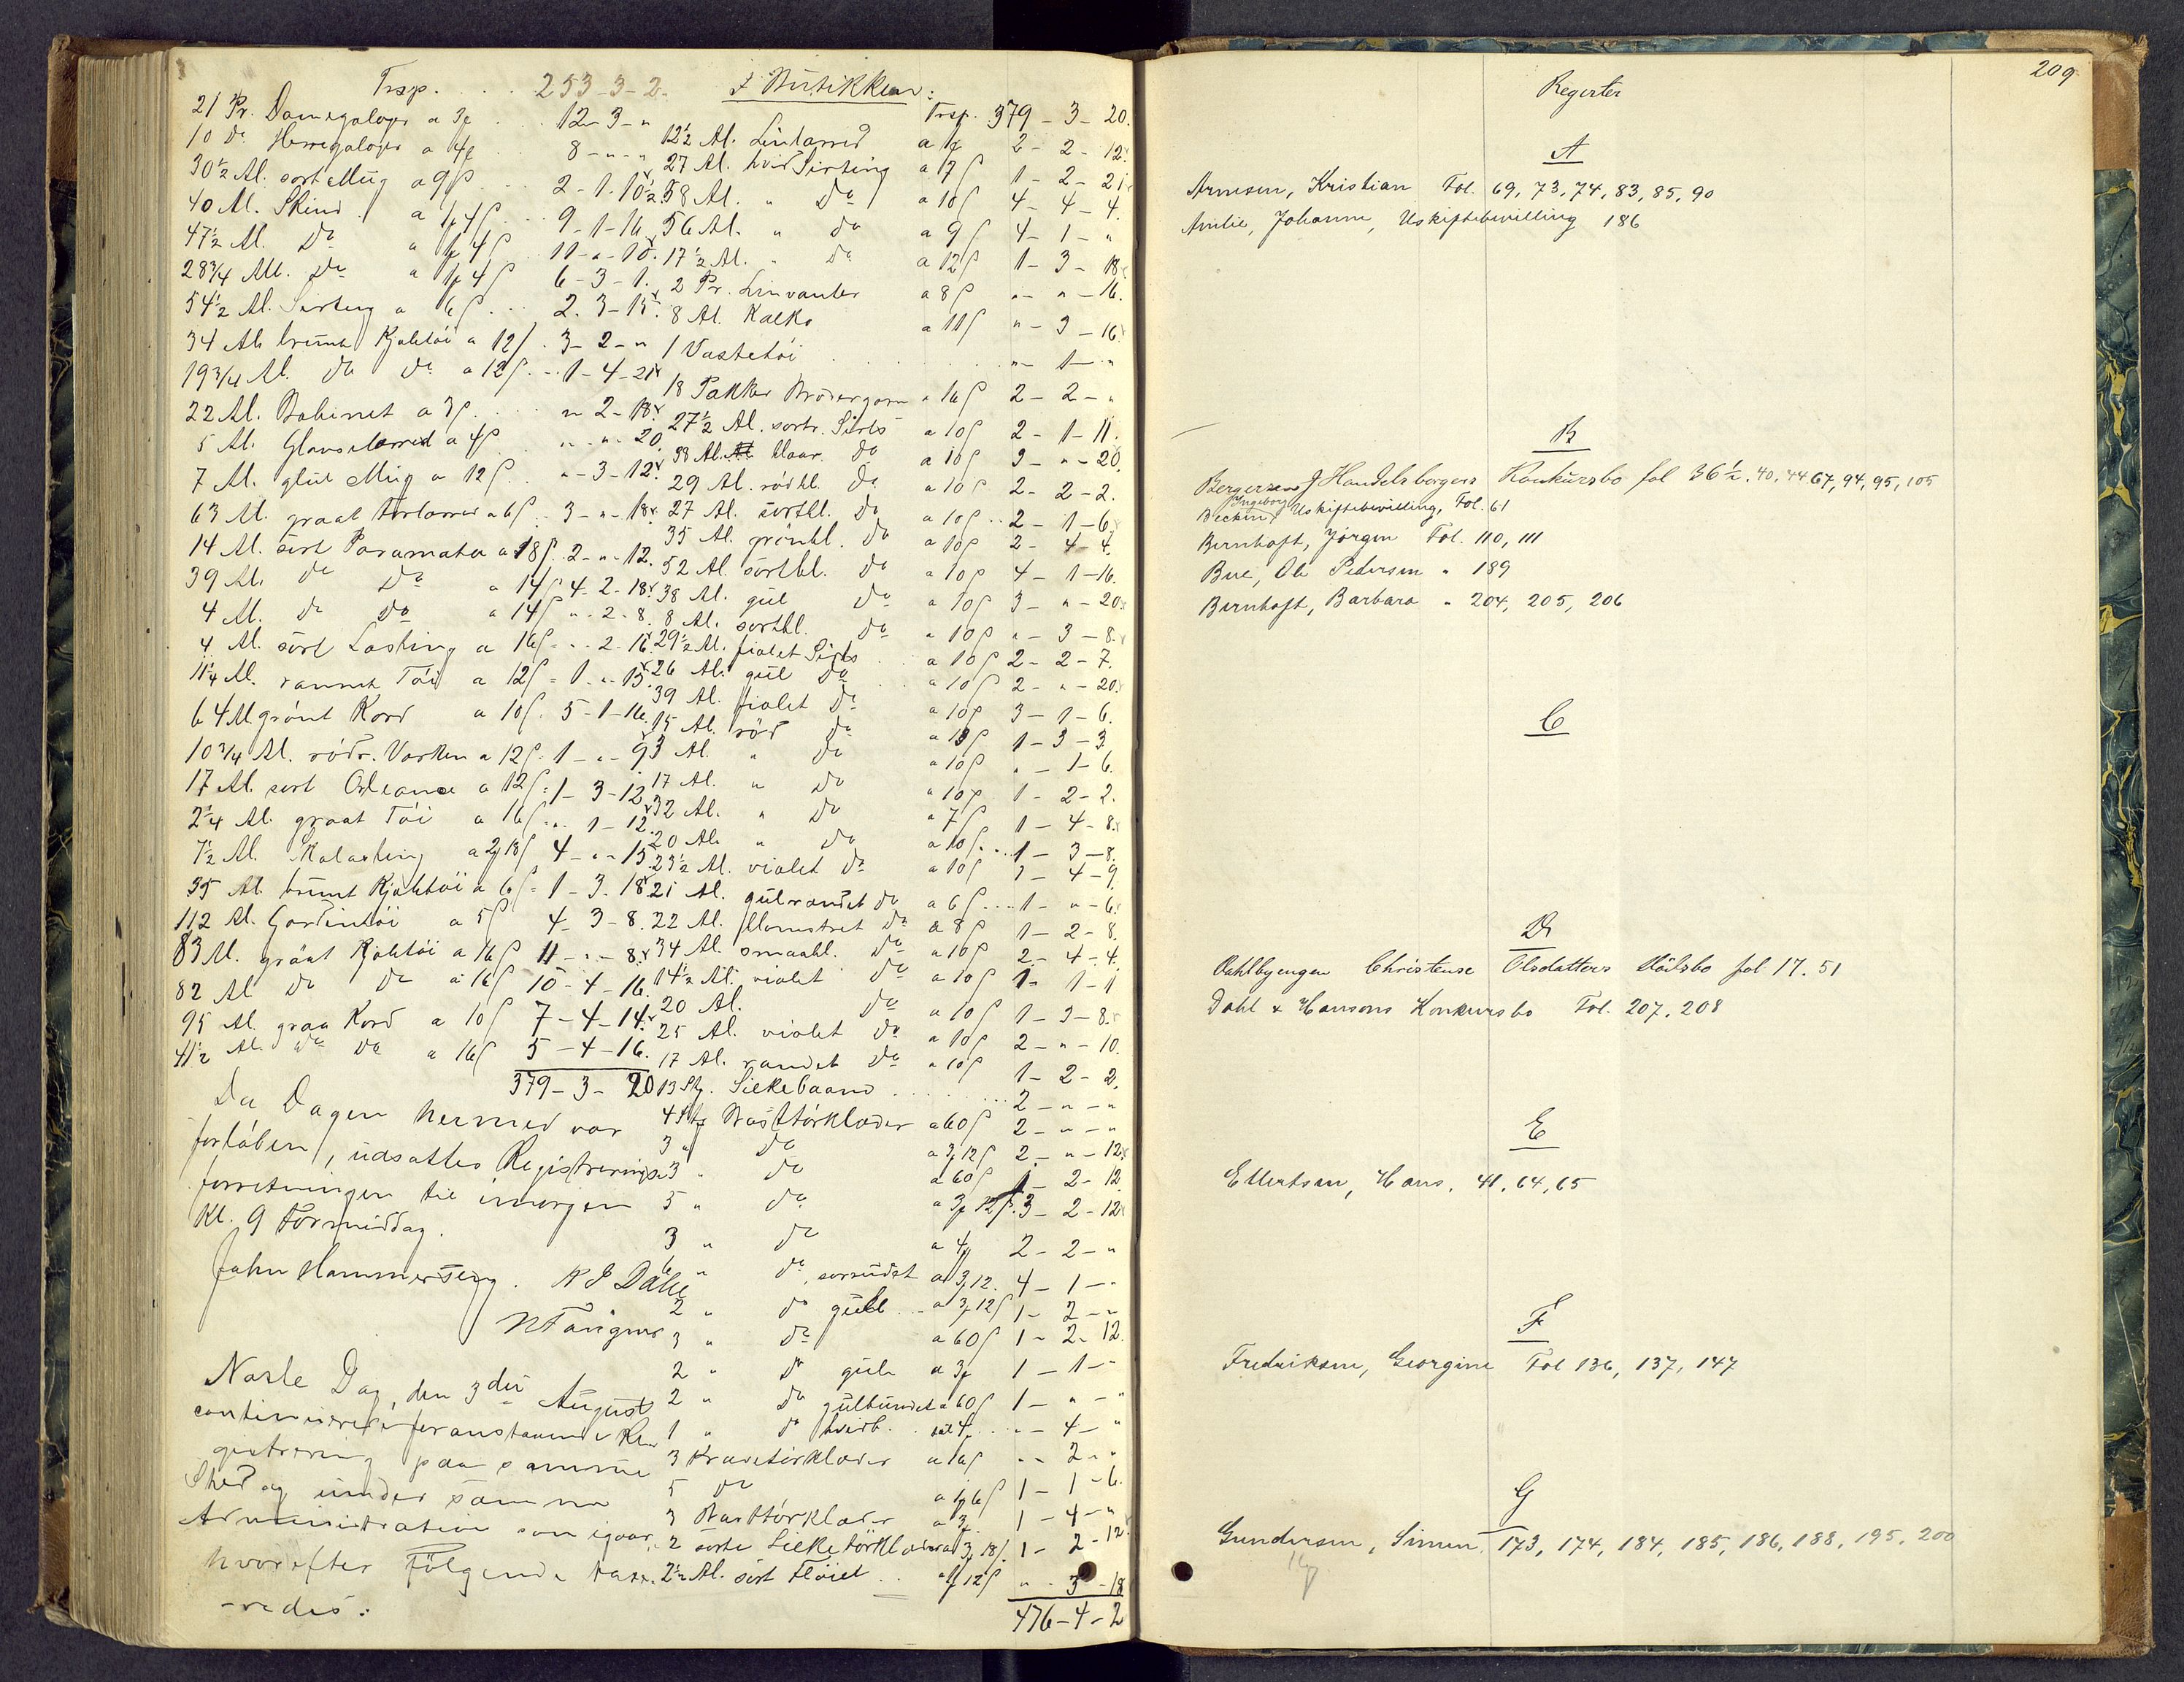 Trsp. . . 253-3-2.
21 Pr. Damegaloger a 3 . . 12-3-"
10 do Herregaloger a 4 . . 8-"-"
30½ Al. sort Meug a 9 . . 2-1-10½
40 Al. Skind a 1 4 . . 9-1-16
47½ Al. Do a 1 4 11-"-10
28¾ Al. Do a 1 4 6-3-1.
54½ Al. Sirting a 6 . . . 2.3-15
34 Al. Kjoletöi a 12 . 3-2-"
19¾ Al. do do a 12 . . 1-4-21
22 Al. Bobinet a 3 . . . "-2-18
5 Al. Glanslærred a 4 . . "-"-20
7 Al. Meug a 12 . . "-3-12
63 Al. graat a 6 . . 3-"-18
14 Al. sort Paramata a 18 . 2-"-12.
39 Al. do Do a 14 4-2-18
4 Al. do Do a 14 "-2-8.
4 Al. sort Lasting a 16 . . 2-16
11¼ Al. rannet Töi a 12 = 1-"-15
64 Al grönt Kord a 10 . 5-1-16
10¾ Al. rödr. Vorken a 12 . 1-"-9
17 Al. sort Orleance a 12 : 1-3-12
2¼ Al. graat Töi a 16 . " 1-12.
7½ Al. a 2 18 4-"-15
35 Al. brunt Kjoletöi a 6 = 1-3-18
112 Al. Gardintöi a 5 4-3-8.
83 Al. grönt Kjoletöi a 16 11-"-8
82 Al Do Do a 16 10-4-16.
95 Al. graa Kord a 10 7-4-14
41½ Al. Do Do a 16 5-4-16.
379-3-20
Da Dagen hermed var
forløben, udsattes Registrerings
forretningen til imorgen
Kl. 9 Formiddag.
John Hammerseng. N J Dahl
Næste Dag, den 3die August
continueredes foranstaaende Re
gistrering paa samme
Sted og under samme
Administration som igaar,
hvorefter Følgende taxe
-redes:
I Butikken:
Trsp. 379-3-20.
12½ Al. Linlærred a 1 2-2-12
27 Al. hvid Sirting a 7 1-2-21
58 Al. " Do a 10 4-4-4.
56 Al. " do a 9 4-1-"
17½ Al. " do a 12 1-3-18
2 Pr. Linvanter a 8 "-"-16.
8 Al. Kalko a 11 "-3-16
1 Vastetöi . . . "-1-"
18 Pakker Brodergarn a 16 2-2-"
27½ Al. sortr. Sirts a 10 2-1-11.
38 Al. blaar. do a 10 3-"-20.
29 Al. rödbl. do a 10 2-2-2.
27 Al. sortbl. do a 10 . . 2-1-6
35 Al. grönbl. do a 10 2-4-4.
52 Al. sortbl. do a 10 4-1-16.
38 Al. gul do a 10 3-"-20
8 Al. sortbl. do a 10 "-3-8.
29½ Al. fiolet Sirts . . a 10 2-2-7.
26 Al. gul Do . . a 10 2-"-20
39 Al. fiolet Do a 10 3-1-6.
15 Al. röd do a 13 1-3-3
3 Al. " do a 10 "-1-6.
17 Al. " do a 10 1-2-2.
32 Al. " do a 7 1-4-8
20 Al. " do a 10 . . 1-3-8.
23½ Al. violet do a 10 1-4-9
21 Al. gulrandet do a 6 . . . 1-"-6
22 Al. blomstret do a 8 1-2-8.
34 Al. smaabl. do a 10 2-4-4.
14½ Al. violet do a 10 1-1-1
20 Al. do a 10 1-3-8.
25 Al. violet do a 10 2-"-10.
17 Al. randet do a 10 1-2-2.
13 Stk. Silkebaand . . . . . 2-"-"
4 Stk Brasttörklæder a 60 2-"-"
3 " do a 3 12 2-"-12
3 " do a 60 1-2-12
5 " do a 3 12 . 3-2-12
3 " do a 4 2-2-"
6 " do, a 3 12. 4-1-"
2 " do gult . . a 3 12 1-2-"
3 " do a 60 1-2-12.
2 " do gule a 3 1-1-"
2 " do gulbundet a 60 1-"-"
1 " do hvidt. . 4 . . "-4-"
3 a 16 "-2-"
5 do a 1 6 1-1-6.
3 Brasttörklæder a 3 1-4-"
2 sorte Silketörklæder a 3 18. 1-2-12
2½ Al. sort Flöiel . . a 1 12 "-3-18
476-4-2
209
Register
A
Arnesen, Kristian Fol. 69, 73, 74, 83, 85, 90
Amlie, Johanne, Uskiftebevilling 186
B
Bergersens J Handelsborgers Konkursbo fol 36½. 40. 44 67, 94, 95, 105
Ingeborg
Becken, Uskiftebevilling, Fol. 61
Bernhoft, Jörgen Fol. 110, 111
Bue, Ole Pedersen " 189
Bernhoft, Barbara " 204, 205, 206
C
D
Dahlbyengen Christense Olsdatters fol 17. 51
Dahl & Hansens Konkursbo Fol. 207, 208
E
Ellertsen, Hans, 41, 64, 65
F
Fredriksen, Georgine Fol 136, 137, 147
G
Gundersen, Simen, 173, 174, 184, 185, 186, 188, 195, 200